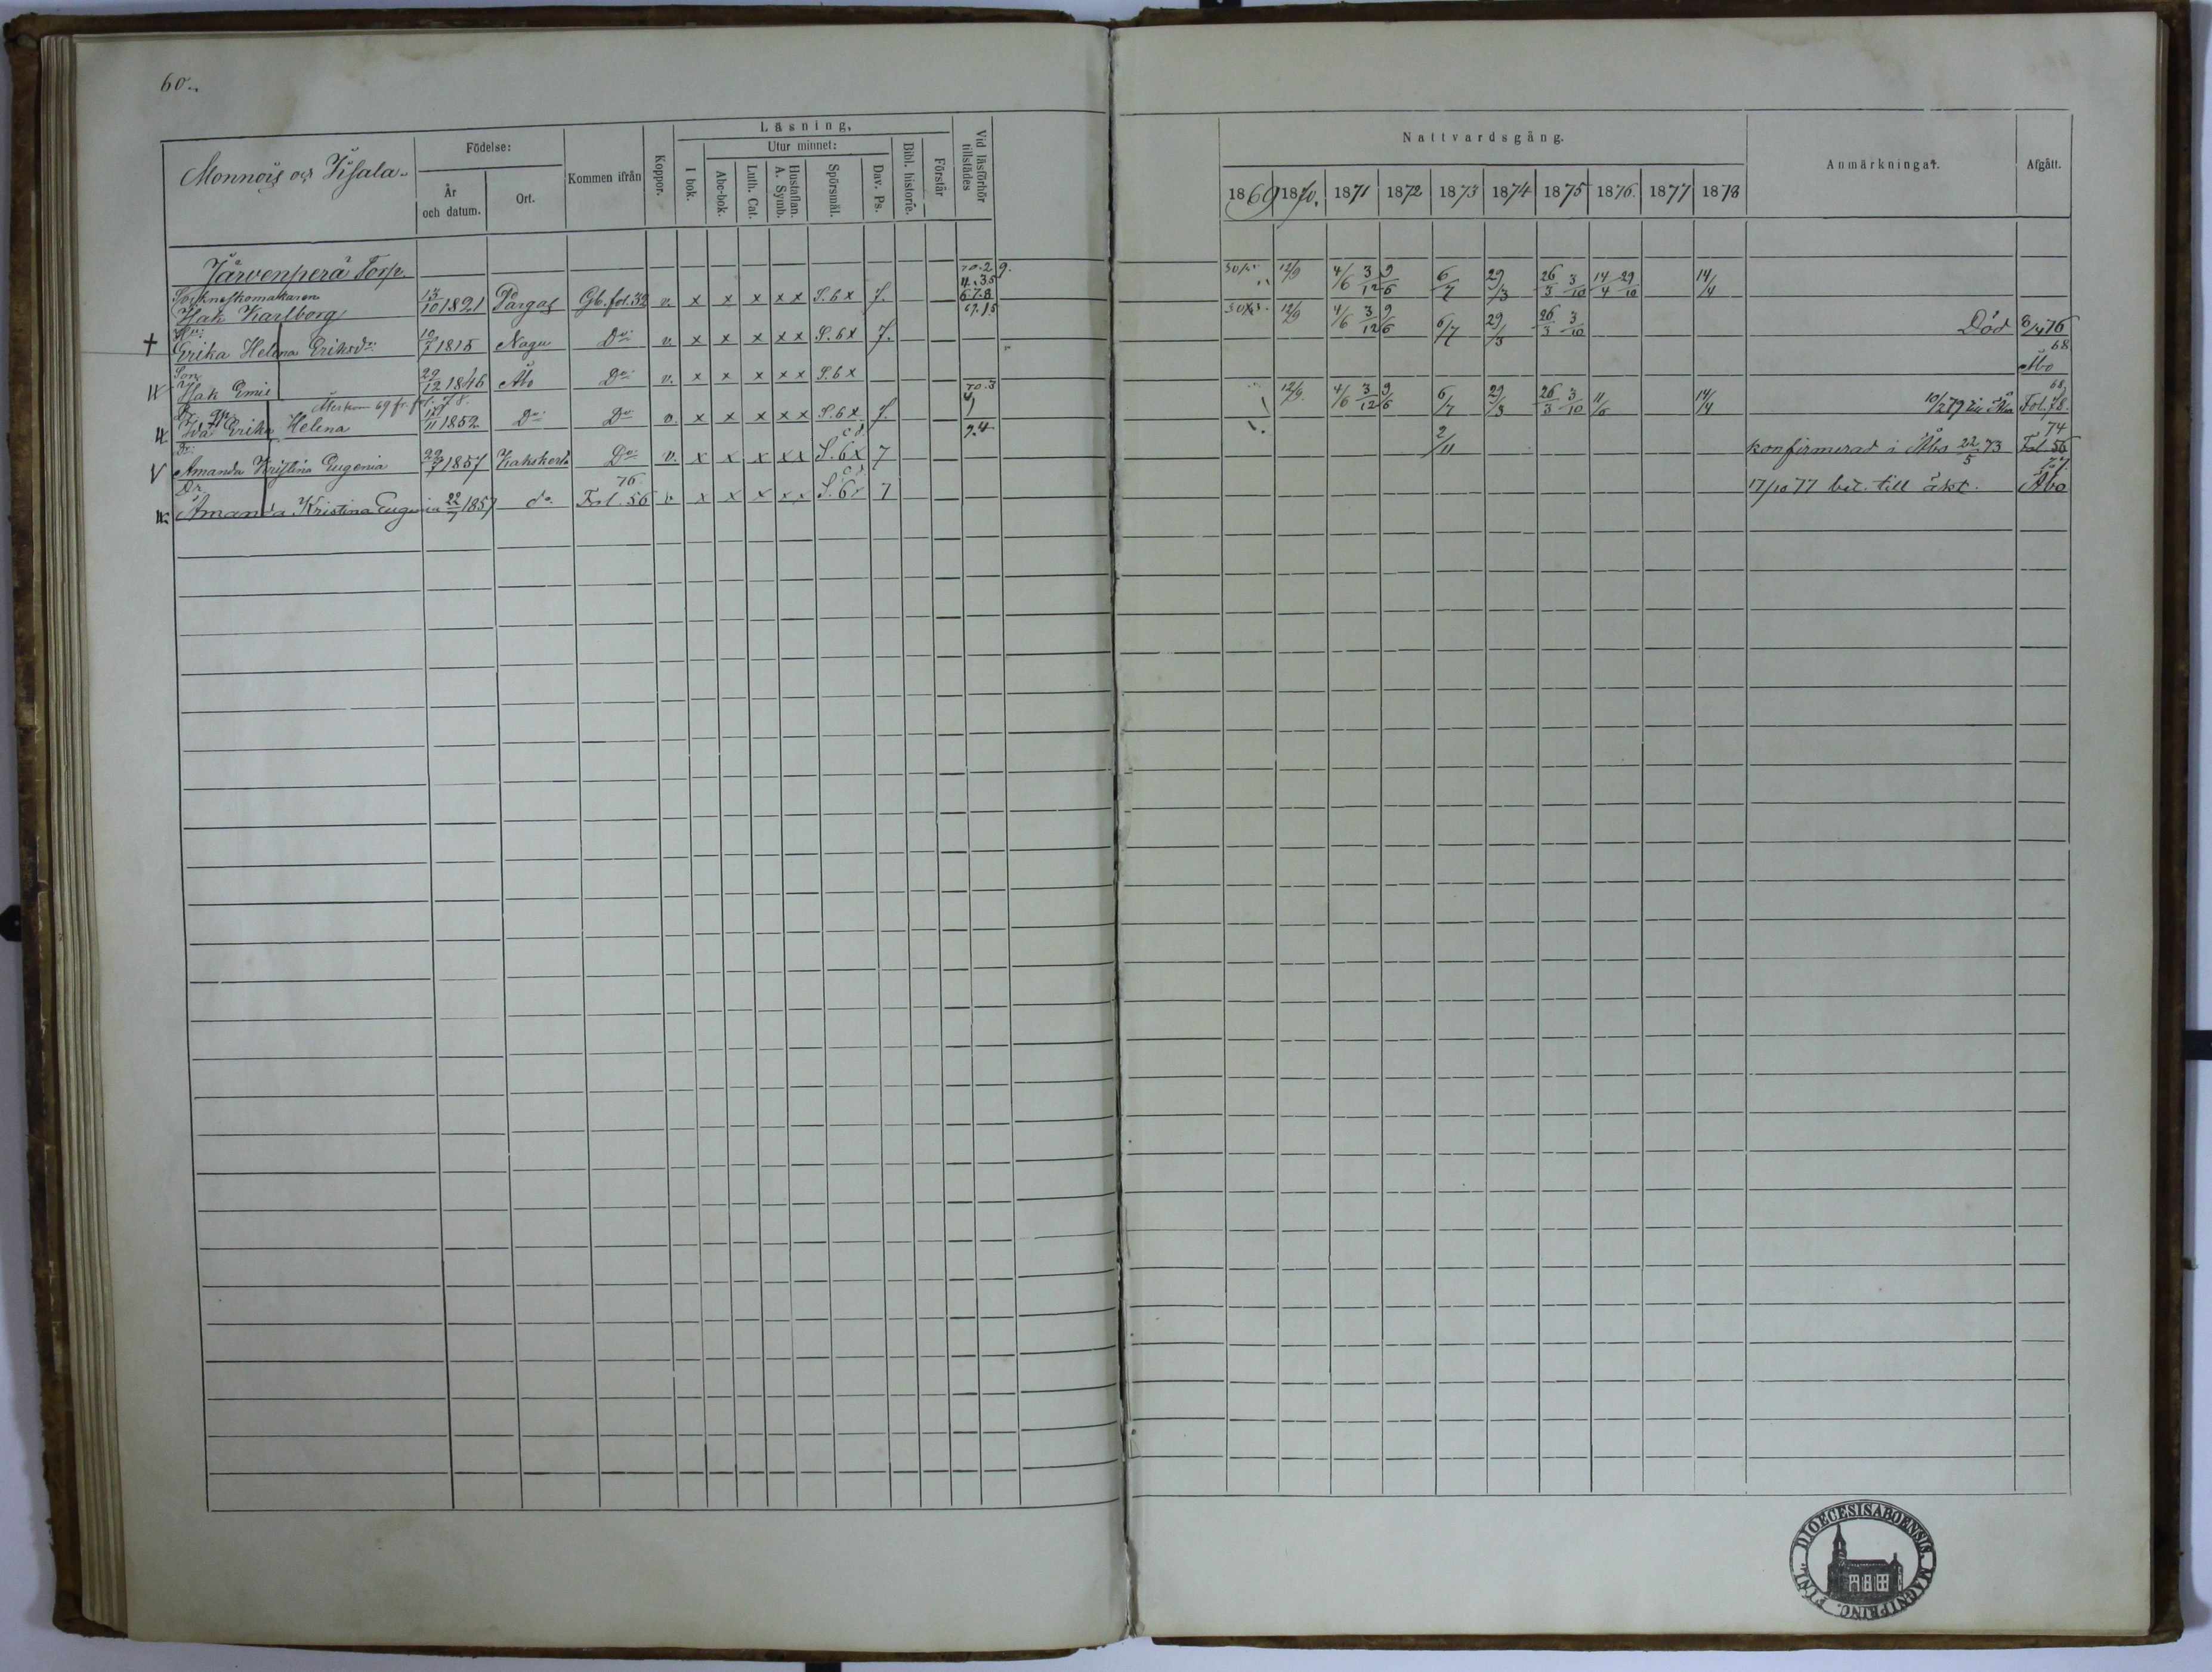 60.
Monnois och
Födelse:
År och datum.
Ort.
Kommen ifrån
Koppor.
Läsning,
I bok.
Utur minnet:
Abc-bok.
Luth. Cat.
Hustaflan. A. Symb.
Spörsmål.
Dav. Ps.
Bibl. historie.
Förstår
Vid läsförhör tillstädes
Nattvardsgång.
1869 1870. 1871 1872 1873 1874 1875 1876. 1877 1878
Anmärkningar.
Afgått.
Järvenperä Torp
70.2 9.
Socknskomakaren 4.35
Isak Karlborg 13/10 1821 Pargas Gb. fol. 32 v. x x x x x S. 6 x 7. 6.7.8 12/9 4/6 3/12 9/6 6/7 29/3 26/3 3/10 14/4 29/10 14/4
Hu:
+ Erika Helena Eriksdr: 10/7 1815 Nagu Do: v. x x x x x S. 6 x 7. 12/9 4/6 3/12 9/6 6/7 29/3 26/3 3/10 Död 8/4 76
Son 68
Isak Emil 29/12 1846 Åbo Do: v. x x x x x S. 6 x Åbo
Återkom 69 fr. fol. 78. 70.3 68
Ida Erika Helena 11 1852 Do: Do: v. x x x x x S. 6 x 7. 12/9. 4/6 3/12 9/6 6/7 29/3 26/3 3/10 11/6 14/4 10/2 79 till Åbo Fol. 78.
Dr: c d. 9.4 74
V Amanda Kristina Eugenia 22/7 1857 Kakskerta Do: v. x x x x x S. 6 x 7 2/11 konfirmerad i Åbo 22/5 73 Fol 56
Dr 76 c d. 77.
Amanda Kristina Eugenia 22/7 1857 do Fol. 56 v. x x x x x S. 6 x 7 17/10 77 bet. till äkt. Åbo
DIOECESISABOENSIS. MAGNI PRINC. FINL.